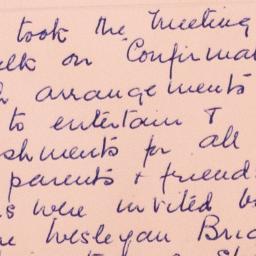 took the Meeting
on Confirmat
arrangements
to entertain &
shments for all
parents + friends
s were invited b
Wesleyan Bri